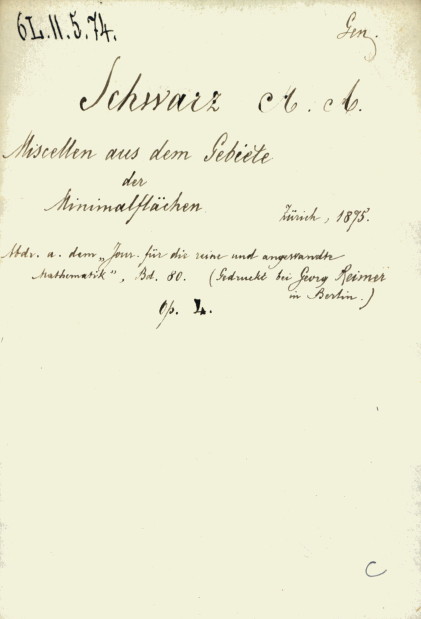 6L.II.5.74.
Gen.
Schwarz A. A.
Miscellen aus dem Gebiete
der
Minimalflächen
Zürich, 1875.
Abdr. a. dem „Jour. für die reine und angewandte
Mathematik", Bd. 80. (Gedruckt bei Georg Reimer
in Berlin.)
Op. 4.
C